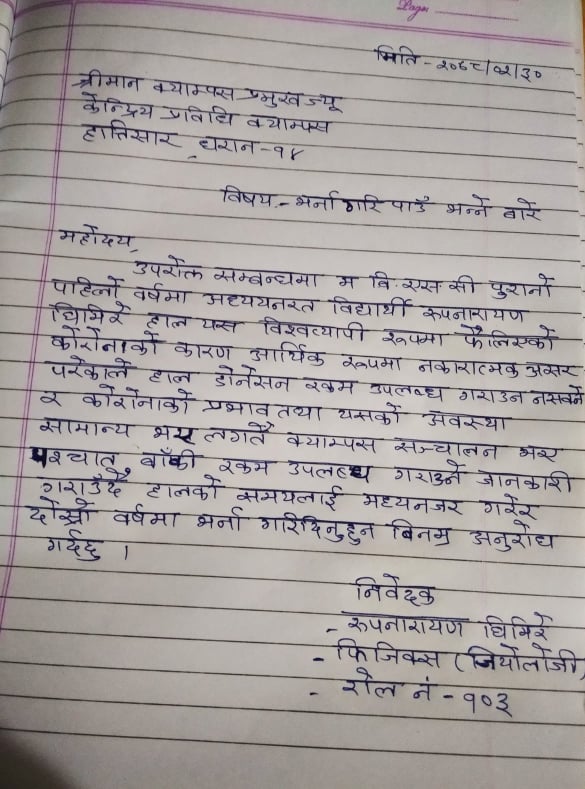 Page:
मिति - २०७८/०२/३०
श्रीमान क्याम्पस प्रमुखज्यू
केन्द्रिय प्रविधि क्याम्पस
हात्तिसार, धरान-१४
विषय:- भर्ना गरि पाउँ भन्ने बारे
महोदय,
उपरोक्त सम्बन्धमा म वि.एस.सी पुरानो
पहिलो वर्षमा अध्ययनरत विद्यार्थी रुपनारायण
घिमिरे हाल यस विश्वव्यापी रूपमा फैलिएको
कोरोनाको कारण आर्थिक रूपमा नकारात्मक असर
परेकाले हाल डोनेसन रकम उपलब्ध गराउन नसक्ने
र कोरोनाको प्रभाव तथा यसको अवस्था
सामान्य भए लगतै क्याम्पस सञ्चालन भए
पश्चात् बाँकी रकम उपलब्ध गराउने जानकारी
गराउँदै हालको समयलाई मध्यनजर गरेर
दोस्रो वर्षमा भर्ना गरिदिनुहुन बिनम्र अनुरोध
गर्दछु ।
निवेदक
- रुपनारायण घिमिरे
- फिजिक्स (जियोलोजी)
- रोल नं - १०३